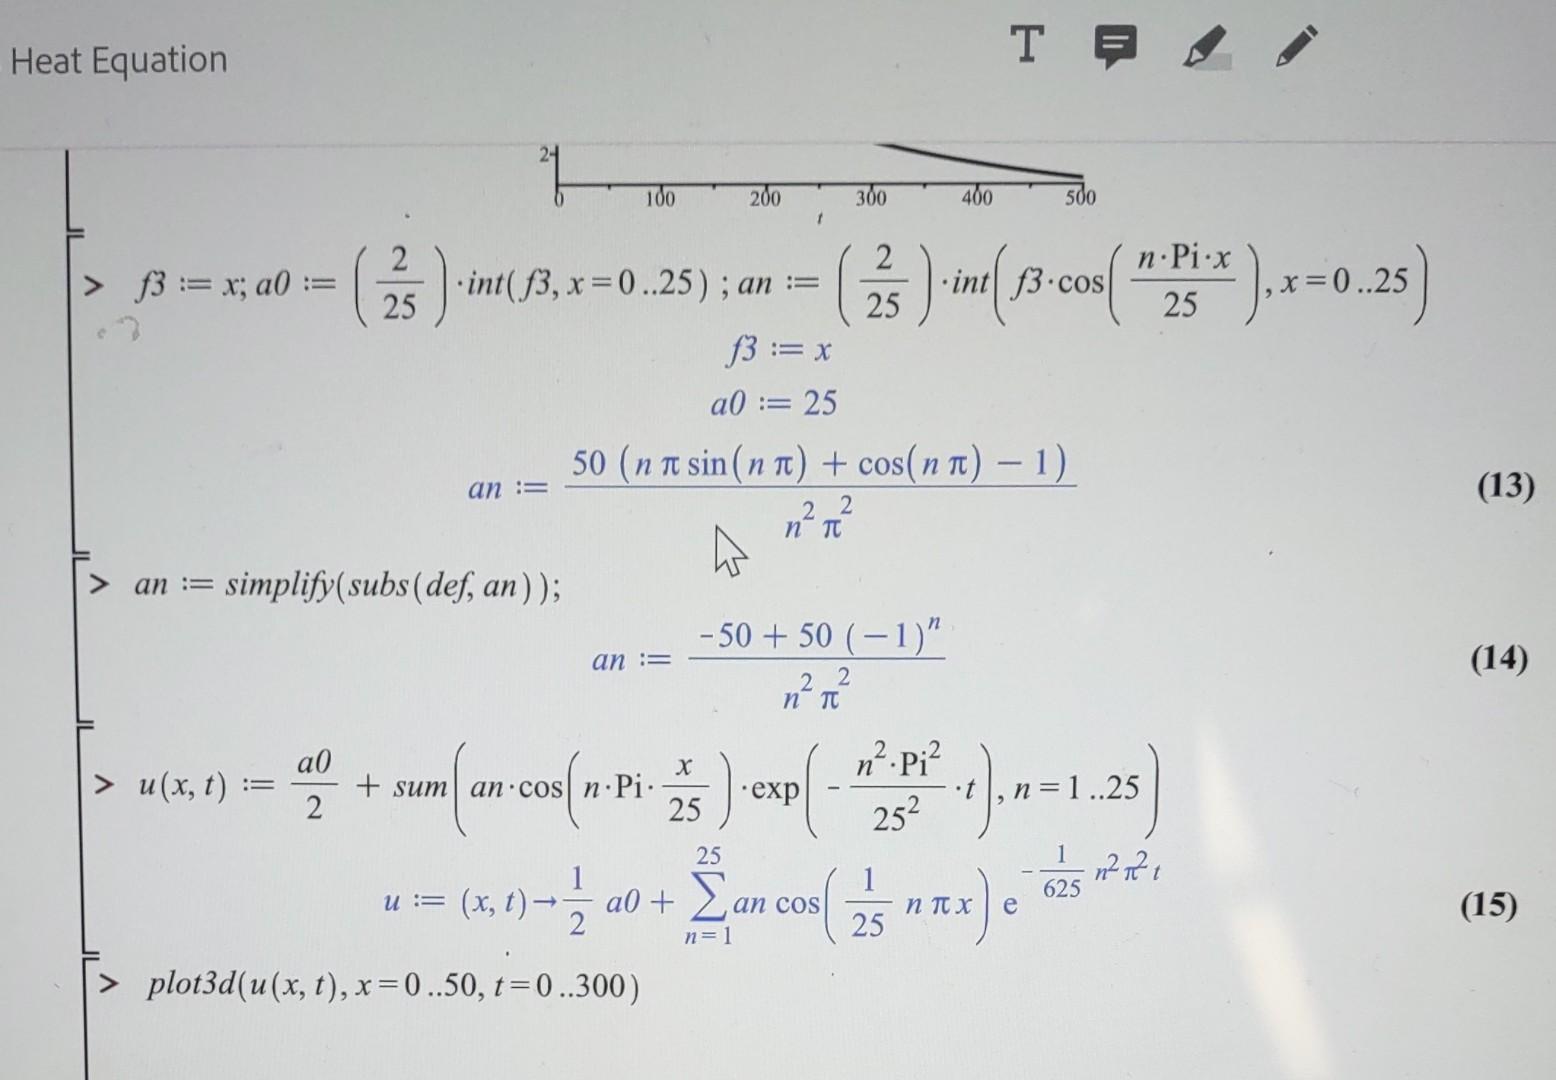 Heat Equation
T
2
0 100 200 300 400 500
t
> f3 := x; a0 := (2/25)·int(f3, x = 0 ..25) ; an := (2/25)·int(f3·cos(n·Pi·x/25), x = 0 ..25)
f3 := x
a0 := 25
an := 50 (n π sin(n π) + cos(n π) − 1) / n² π² (13)
> an := simplify(subs(def, an));
an := -50 + 50 (−1)ⁿ / n² π² (14)
> u(x, t) := a0/2 + sum(an·cos(n·Pi·x/25)·exp(-n²·Pi²/25²·t), n = 1 ..25)
u := (x, t)→1/2 a0 + ∑_{n=1}^{25} an cos(1/25 n π x) e^{-1/625 n² π² t} (15)
> plot3d(u(x, t), x = 0 ..50, t = 0 ..300)